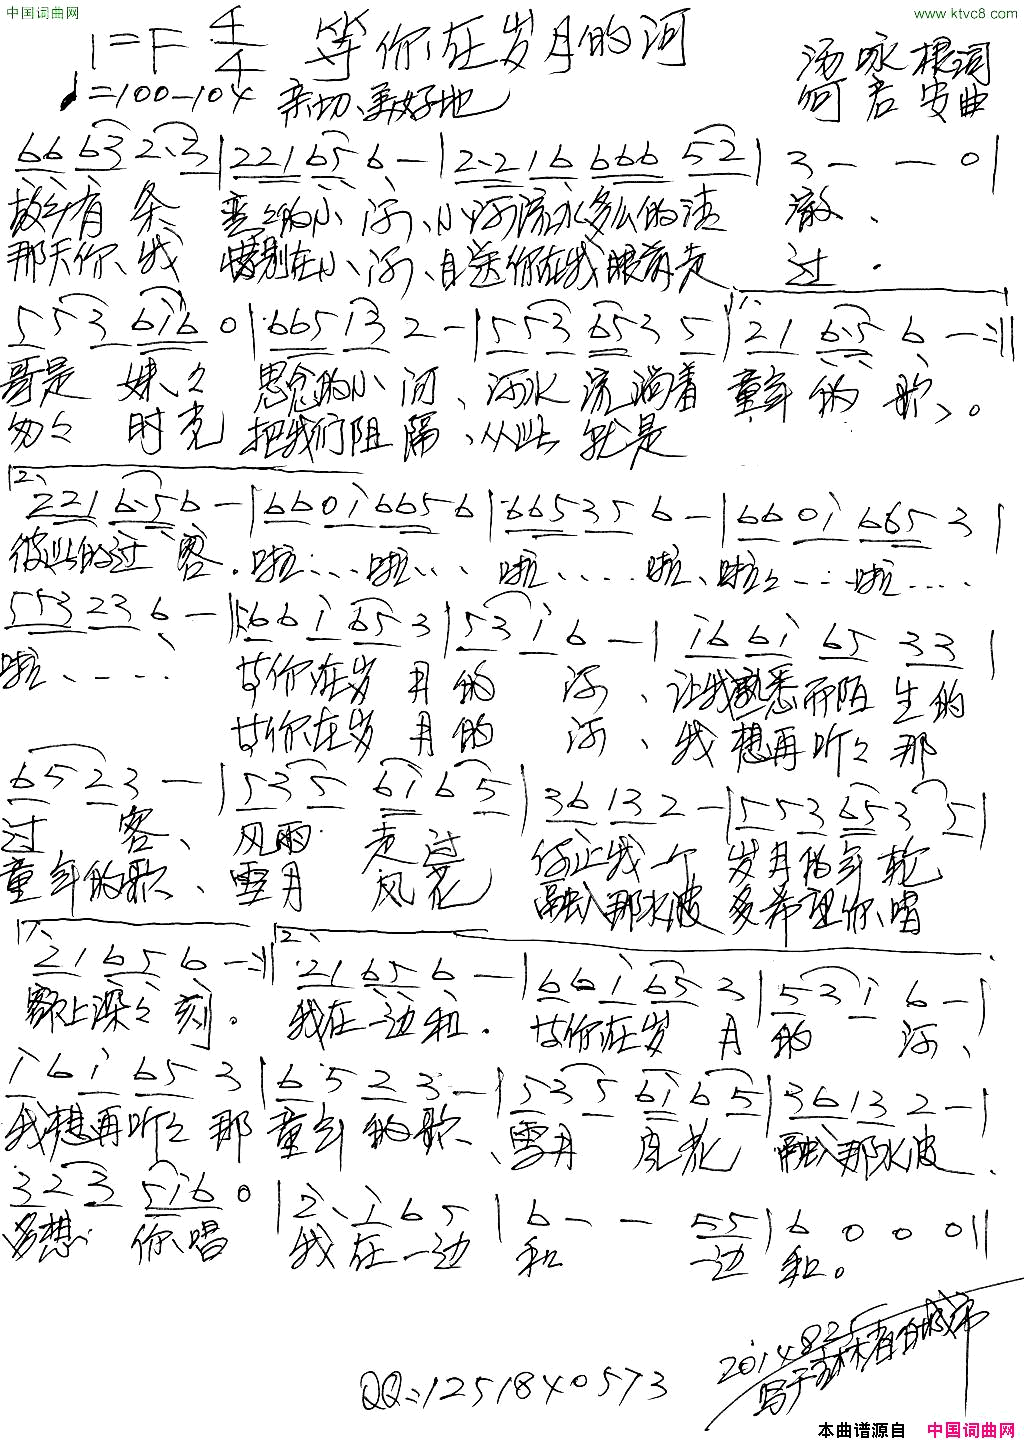 中国词曲网
www.ktvc8.com
1=F 4/4 等你在岁月的河
汤咏根词
♩=100-104 亲切、美好地
何君安曲
66 63 2·3 | 221 65 6 - | 2·216 666 52 | 3 - - 0 |
故乡有条 弯々的小河、小河流水多么的清澈、
那天你、我 惜别在小河、目送你在我眼前走过.
5 53 6i6 0 | 665 13 2 - | 5 53 653 5 | 1、 21 6·5 6 - :||
哥是妹々 思念的小河、河水流淌着童年的歌。
匆々时光 把我们阻隔、从此就是
2、 221 6·5 6 - | 66 0i 665 6 | 66535 6 - | 66 0i 665 3 |
彼此的过客. 啦……啦… 啦……啦、啦々……啦……
553 23 6 - |: 66i 65 3 | 53i 6 - | i6 6i 65 33 |
啦、…… 等你在岁月的河、让我熟悉而陌生的
等你在岁月的河、我想再听々那
6523 - | 535 6i65 | 36 13 2 - | 5 53 653 5 |
过客、风雨走过 你让我一个岁月的年轮
童年的歌、雪月风花 融入那水波 多希望你唱
1、 21 656 - :|| 2、 21 656 - | 66i 65 3 | 53i 6 - |
额上深々刻。 我在一边和. 等你在岁月的河、
i6i 65 3 | 6·523 - | 535 6i65 | 3613 2 - |
我想再听々那童年的歌、雪月风花 融入那水波.
323 5i6 0 | 2、i65 | 6 - - 55 | 6 0 0 0 ||
多想你唱 我在一边和 一边和。
2014825
写于森林省白城市
QQ=1251840573
本曲谱源自 中国词曲网